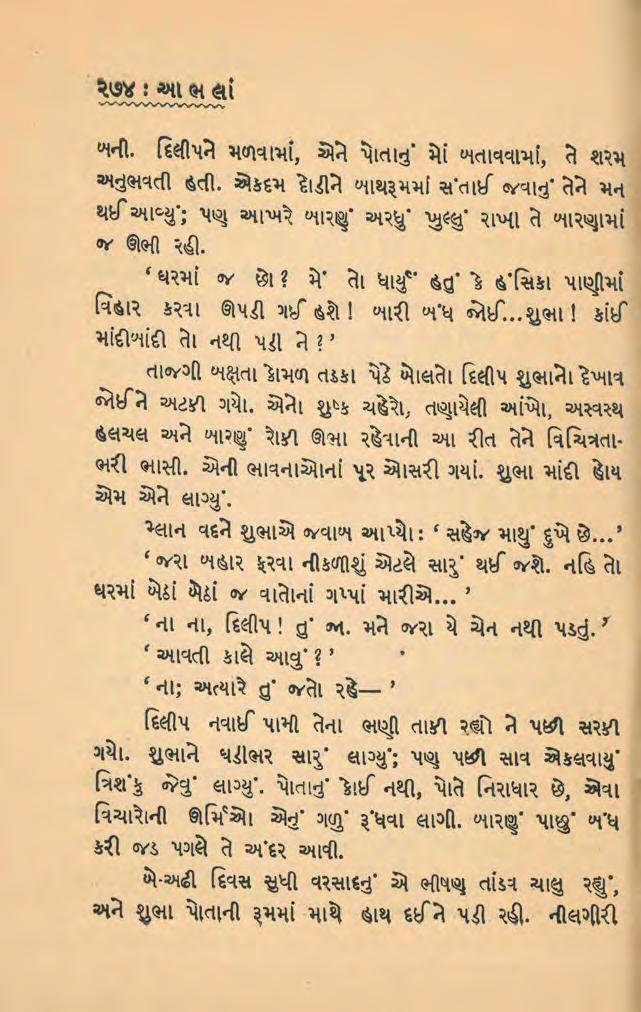 ૨૭૪ : આ ભ લાં
બની. દિલીપને મળવામાં, એને પોતાનું મોં બતાવવામાં, તે શરમ
અનુભવતી હતી. એકદમ દોડીને બાથરૂમમાં સંતાઈ જવાનું તેને મન
થઈ આવ્યું; પણ આખરે બારણું અરધું ખુલ્લું રાખા તે બારણામાં
જ ઊભી રહી.
‘ ઘરમાં જ છો ? મેં તો ધાર્યું હતું કે હંસિકા પાણીમાં
વિહાર કરવા ઊપડી ગઈ હશે ! બારી બંધ જોઈ...શુભા ! કાંઈ
માંદીબાંદી તો નથી પડી ને ? ’
તાજગી બક્ષતા કોમળ તડકા પેઠે બોલતો દિલીપ શુભાનો દેખાવ
જોઈને અટકી ગયો. એનો શુષ્ક ચહેરો, તણાયેલી આંખો, અસ્વસ્થ
હલચલ અને બારણું રોકી ઊભા રહેવાની આ રીત તેને વિચિત્રતા-
ભરી ભાસી. એની ભાવનાઓનાં પૂર ઓસરી ગયાં. શુભા માંદી હોય
એમ એને લાગ્યું.
મ્લાન વદને શુભાએ જવાબ આપ્યો : ‘ સહેજ માથું દુખે છે... ’
‘ જરા બહાર ફરવા નીકળીશું એટલે સારું થઈ જશે. નહિ તો
ઘરમાં બેઠાં બેઠાં જ વાતોનાં ગપ્પાં મારીએ... ’
‘ ના ના, દિલીપ ! તું જા. મને જરા યે ચેન નથી પડતું. ’
‘ આવતી કાલે આવું ? ’
‘ ના; અત્યારે તું જતો રહે— ’
દિલીપ નવાઈ પામી તેના ભણી તાકી રહ્યો ને પછી સરકી
ગયો. શુભાને ઘડીભર સારું લાગ્યું; પણ પછી સાવ એકલવાયું
ત્રિશંકુ જેવું લાગ્યું. પોતાનું કોઈ નથી, પોતે નિરાધાર છે, એવા
વિચારોની ઊર્મિઓ એનું ગળું રૂંધવા લાગી. બારણું પાછું બંધ
કરી જડ પગલે તે અંદર આવી.
બે-અઢી દિવસ સુધી વરસાદનું એ ભીષણ તાંડવ ચાલુ રહ્યું,
અને શુભા પોતાની રૂમમાં માથે હાથ દઈને પડી રહી. નીલગીરી